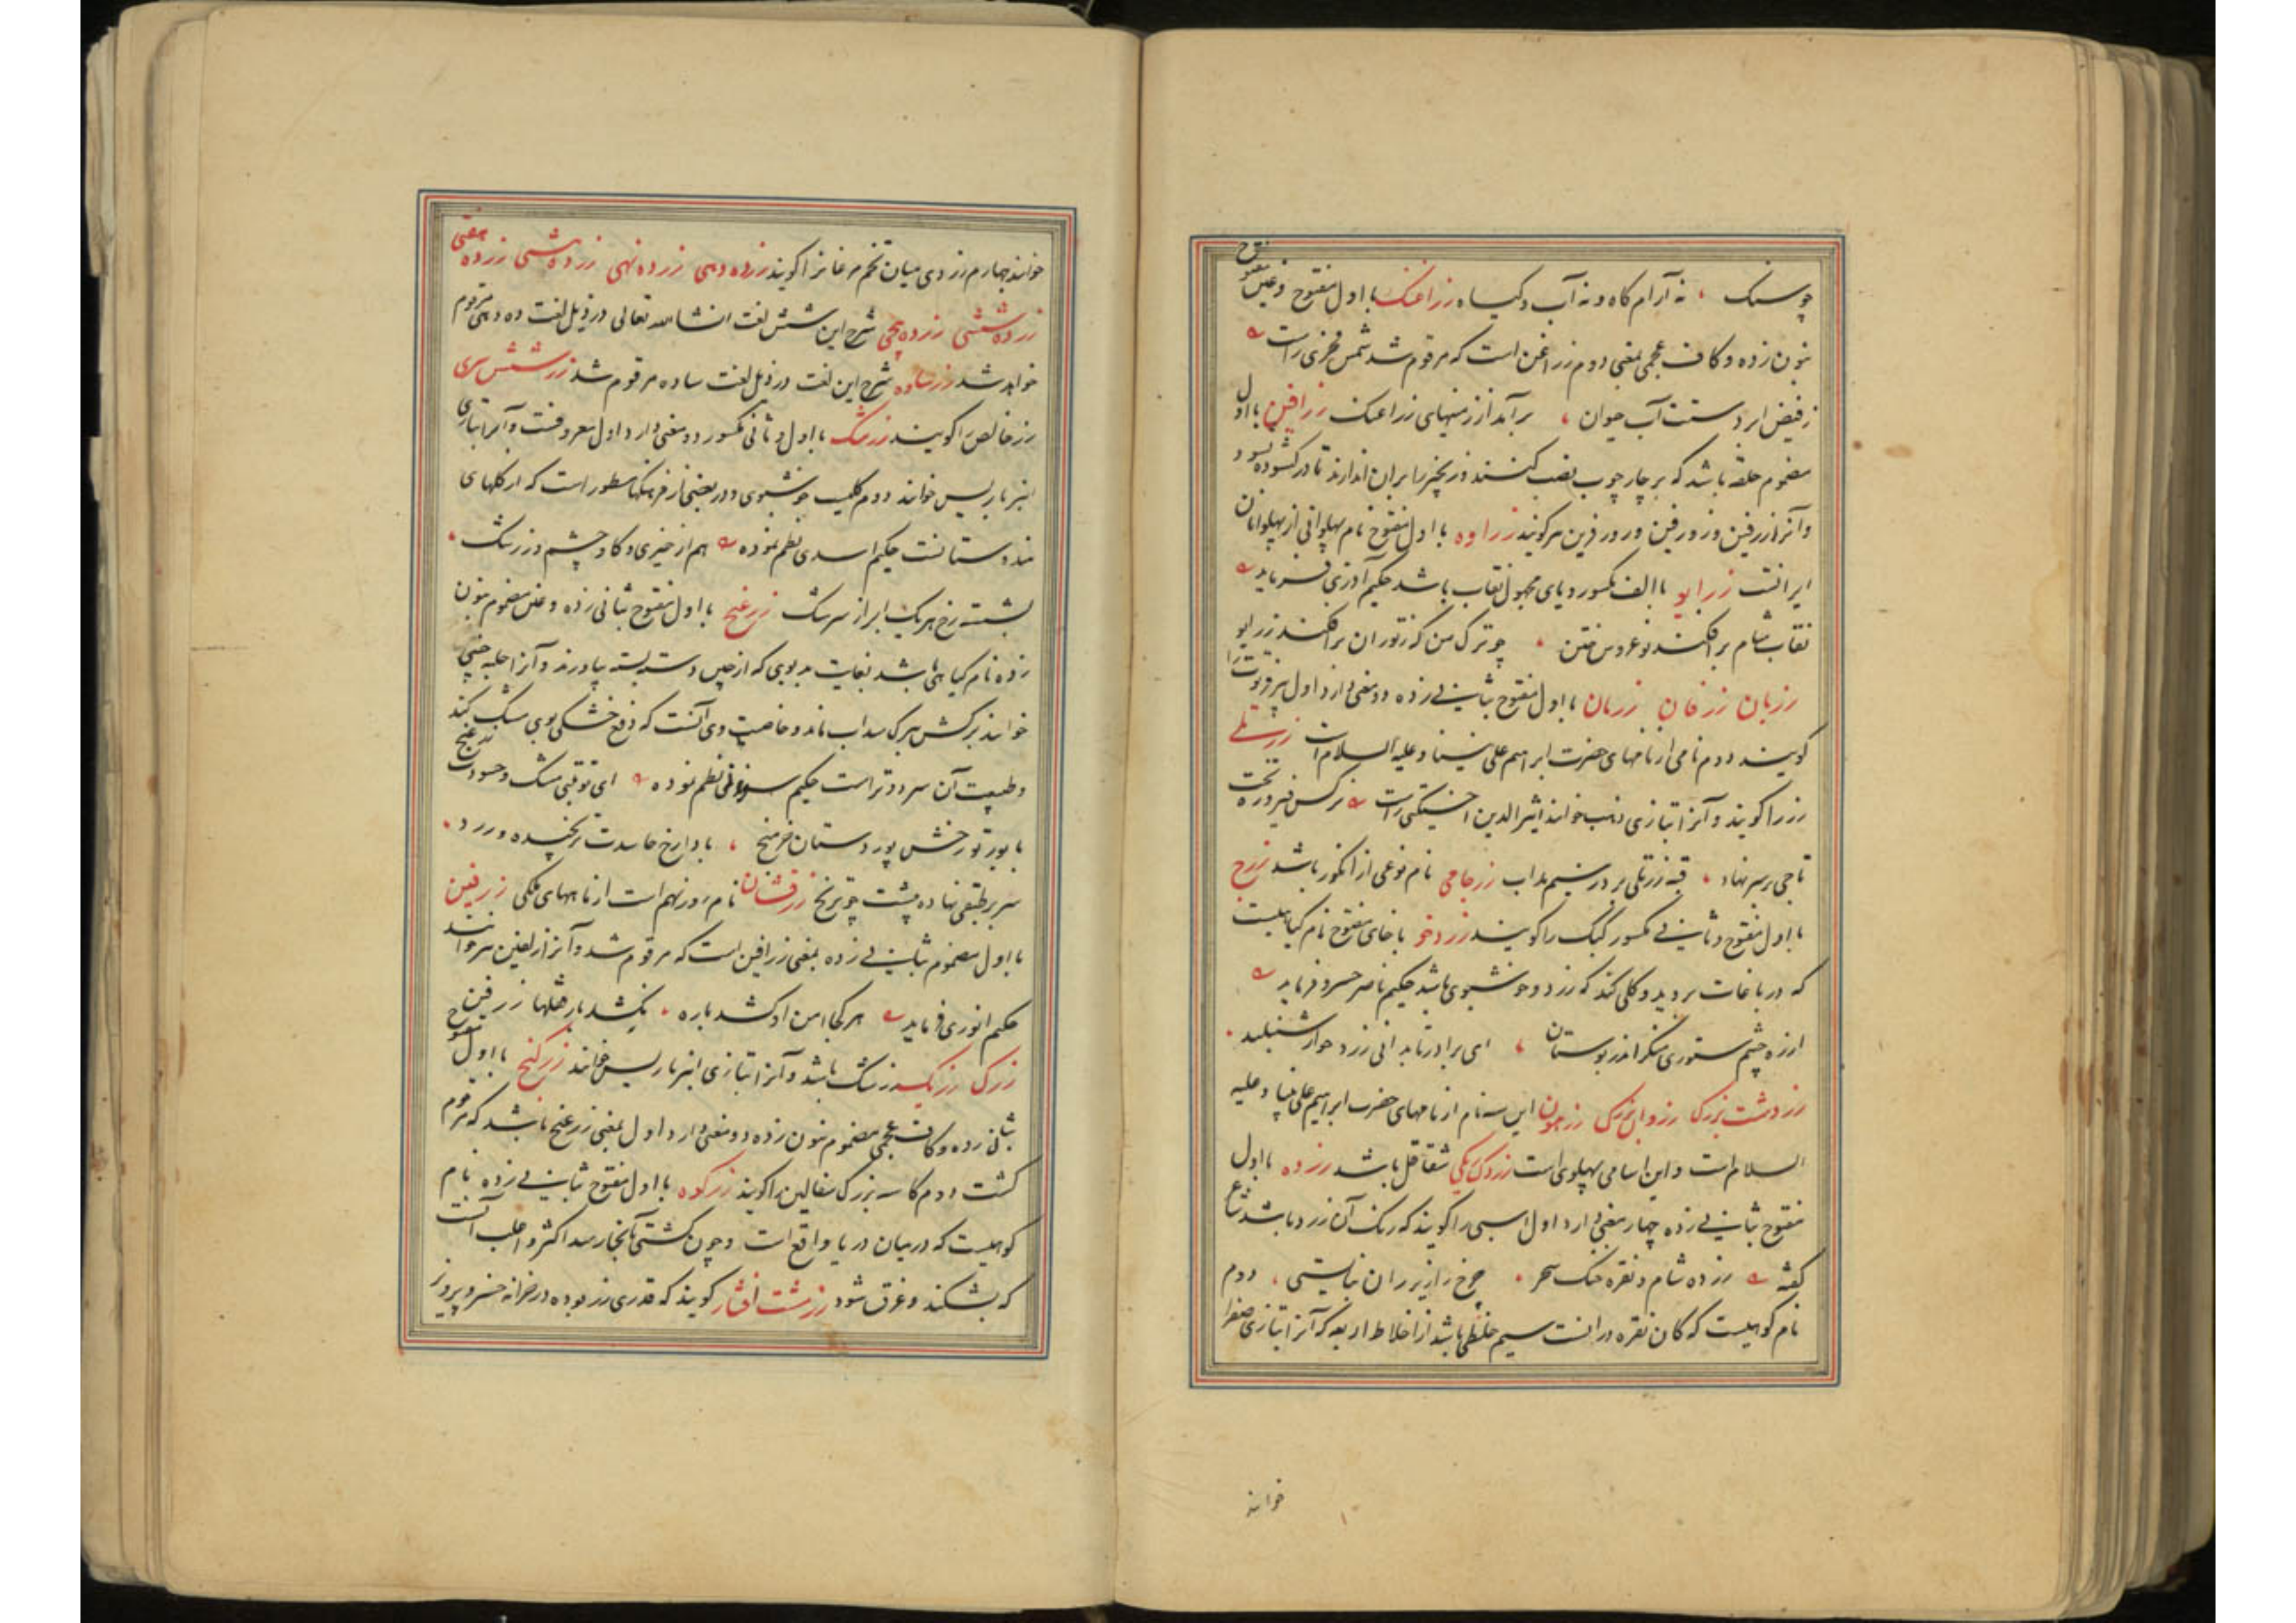 چو سنک ، نه آرام کاه و نه آب و کیاه زراغنک با اول مفتوح و غین مفتوح
بنون زده و کاف عجمی بمعنی دوم زراغن است که مرقوم شد شمس فخری راست
ز فیض ابر دستت آب حیوان ، برآید از زمینهای زراغنک زرافین با اول
مضموم حلقه باشد که بر چارچوب نصب کنند و زنجیر را بران اندازند تا در کشوده نشود
و آنرا زرفین و زورفین و زورفرین هم کویند زراوه با اول مفتوح نام پهلوانی از پهلوانان
ایرانست زرایو با الف مکسور و یای مجهول نقاب باشد حکیم آذری فرماید
نقاب شام برافکند نوعروس ختن ، چو ترک من که ز توران برافکند زرایو
زربان زرفان زرمان با اول مفتوح بثانی زده دو معنی دارد اول پیر فرتوت را
کویند دوم نامی از نامهای حضرت ابراهیم علی نبینا و علیه السلام است زرتلی
زر را کویند و آنرا بتازی ذهب خوانند اثیرالدین اخسیکتی راست نرکس فیروزه تخت
تاجی بر سر نهاد ، قبه زرتلی بر در سیم مذاب زرجامی نام نوعی از انکور باشد زرج
با اول مفتوح و ثانی مکسور کبک را کویند زردخو با خای مفتوح نام کیاهیست
که در باغات بروید و کلی کند که زرد و خوشبوی باشد حکیم ناصر خسرو فرماید
از ره چشم ستوری منکر اندر بوستان ، ای برادر تا بدانی زردخو از شنبلید
زردشت بزرک زروان بزرک زرهون این سه نام از نامهای حضرت ابراهیم علی نبینا و علیه
السلام است و این اسامی پهلوی است زردک ریکی شقاقل باشد زرده با اول
مفتوح بثانی زده چهار معنی دارد اول اسپی را کویند که رنک آن زرد باشد شاعر
کفته زرده شام و نقره خنک سحر ، چرخ را زیر ران نبایستی ، دوم
نام کوهیست که کان نقره درانست سیم خلطی باشد از اخلاط اربعه که آنرا بتازی صفرا
خوانند
خوانند چهارم زردی میان تخم مرغانرا کویند زرده دهی زرده نهی زرده هشتی زرده هفتی
زرده ششی زرده پنجی شرح این شش لغت انشاءالله تعالی در ذیل لغت ده دهی مرقوم
خواهد شد زرساوه شرح این لغت در ذیل لغت ساده مرقوم شد زر شش سری
زر خالص را کویند زرشک با اول و ثانی مکسور دو معنی دارد اول معروفست و آنرا بتازی
انبرباریس خوانند دوم کلیست خوشبوی و در بعضی از فرهنکها مسطور است که از کلهای
هندوستانست حکیم اسدی نظم نموده هم از خیری و کاوچشم و زرشک ،
بشسته رخ هر یک ابر از سرشک زرغنج با اول مفتوح بثانی زده و غین مضموم بنون
زده نام کیاهی باشد بغایت بدبوی که از چین دسته بسته بیاورند و آنرا حلبه چینی
خوانند برکش ببرک سداب ماند و خاصیت وی آنست که دفع خشکی بوی مشک کند
و طبیعت آن سرد و تر است حکیم سوزنی نظم نموده ای توقی مشک و حسودت زرغنج
با بور تو رخش پور دستان خرمنج ، بادا رخ حاسدت ترنجیده و زرد ،
سر بر طبقی نهاده پشت چو ترنج زرفشان نام روز نهم است از ماههای ملکی زرفین
با اول مضموم بثانی زده بمعنی زرافین است که مرقوم شد و آنرا زلفین هم خوانند
حکیم انوری فرماید هر کجا امن او کشد باره ، نکشد بار قفلها زرفین
زرک زریک زرشک باشد و آنرا بتازی انبرباریس خوانند زرکنج با اول مفتوح
بثانی زده و کاف عجمی مضموم بنون زده دو معنی دارد اول بمعنی زرغنج باشد که مرقوم
کشت دوم کاسه بزرک سفالین را کویند زرکوه با اول مفتوح بثانی زده نام
کوهیست که درمیان دریا واقع است و چون کشتی آنجا رسد اکثر و اغلب آنست
که بشکند و غرق شود زر مشت افشار کویند که قدری زر بوده در خزانه خسرو پرویز